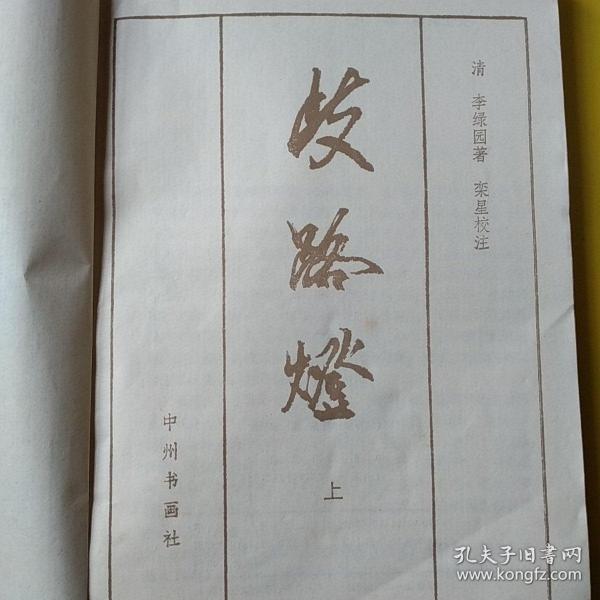 清 李绿园著 栾星校注
歧路燈
上
中州书画社
孔夫子旧书网
www.kongfz.com